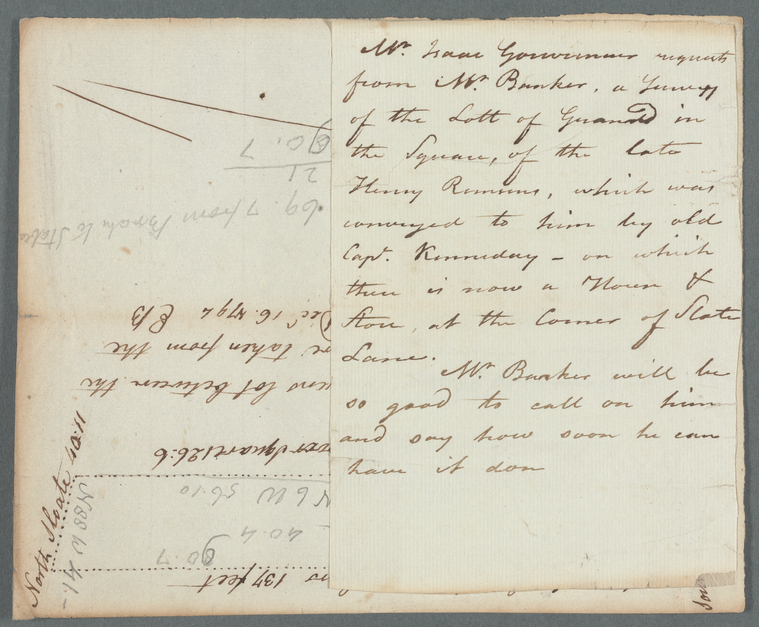 Mr. Isaac Gouverneur requests
from Mr. Banker, a Survey
of the Lott of Ground in
the Square, of the late
Henry Remsens, which was
conveyed to him by old
Capt. Kenneday – on which
there is now a House &
Store, at the Corner of Slote
Lane.
Mr. Banker will be
so good to call on him
and say how soon he can
have it don
90.7
21
69.7 from to Slote
Dec 16. 1792 EB
taken from the
lot between the
Square 126:6
N 6 W 56.10
40.4
90.7
137 feet
North Sloate 40:11
N 88 W 41.-